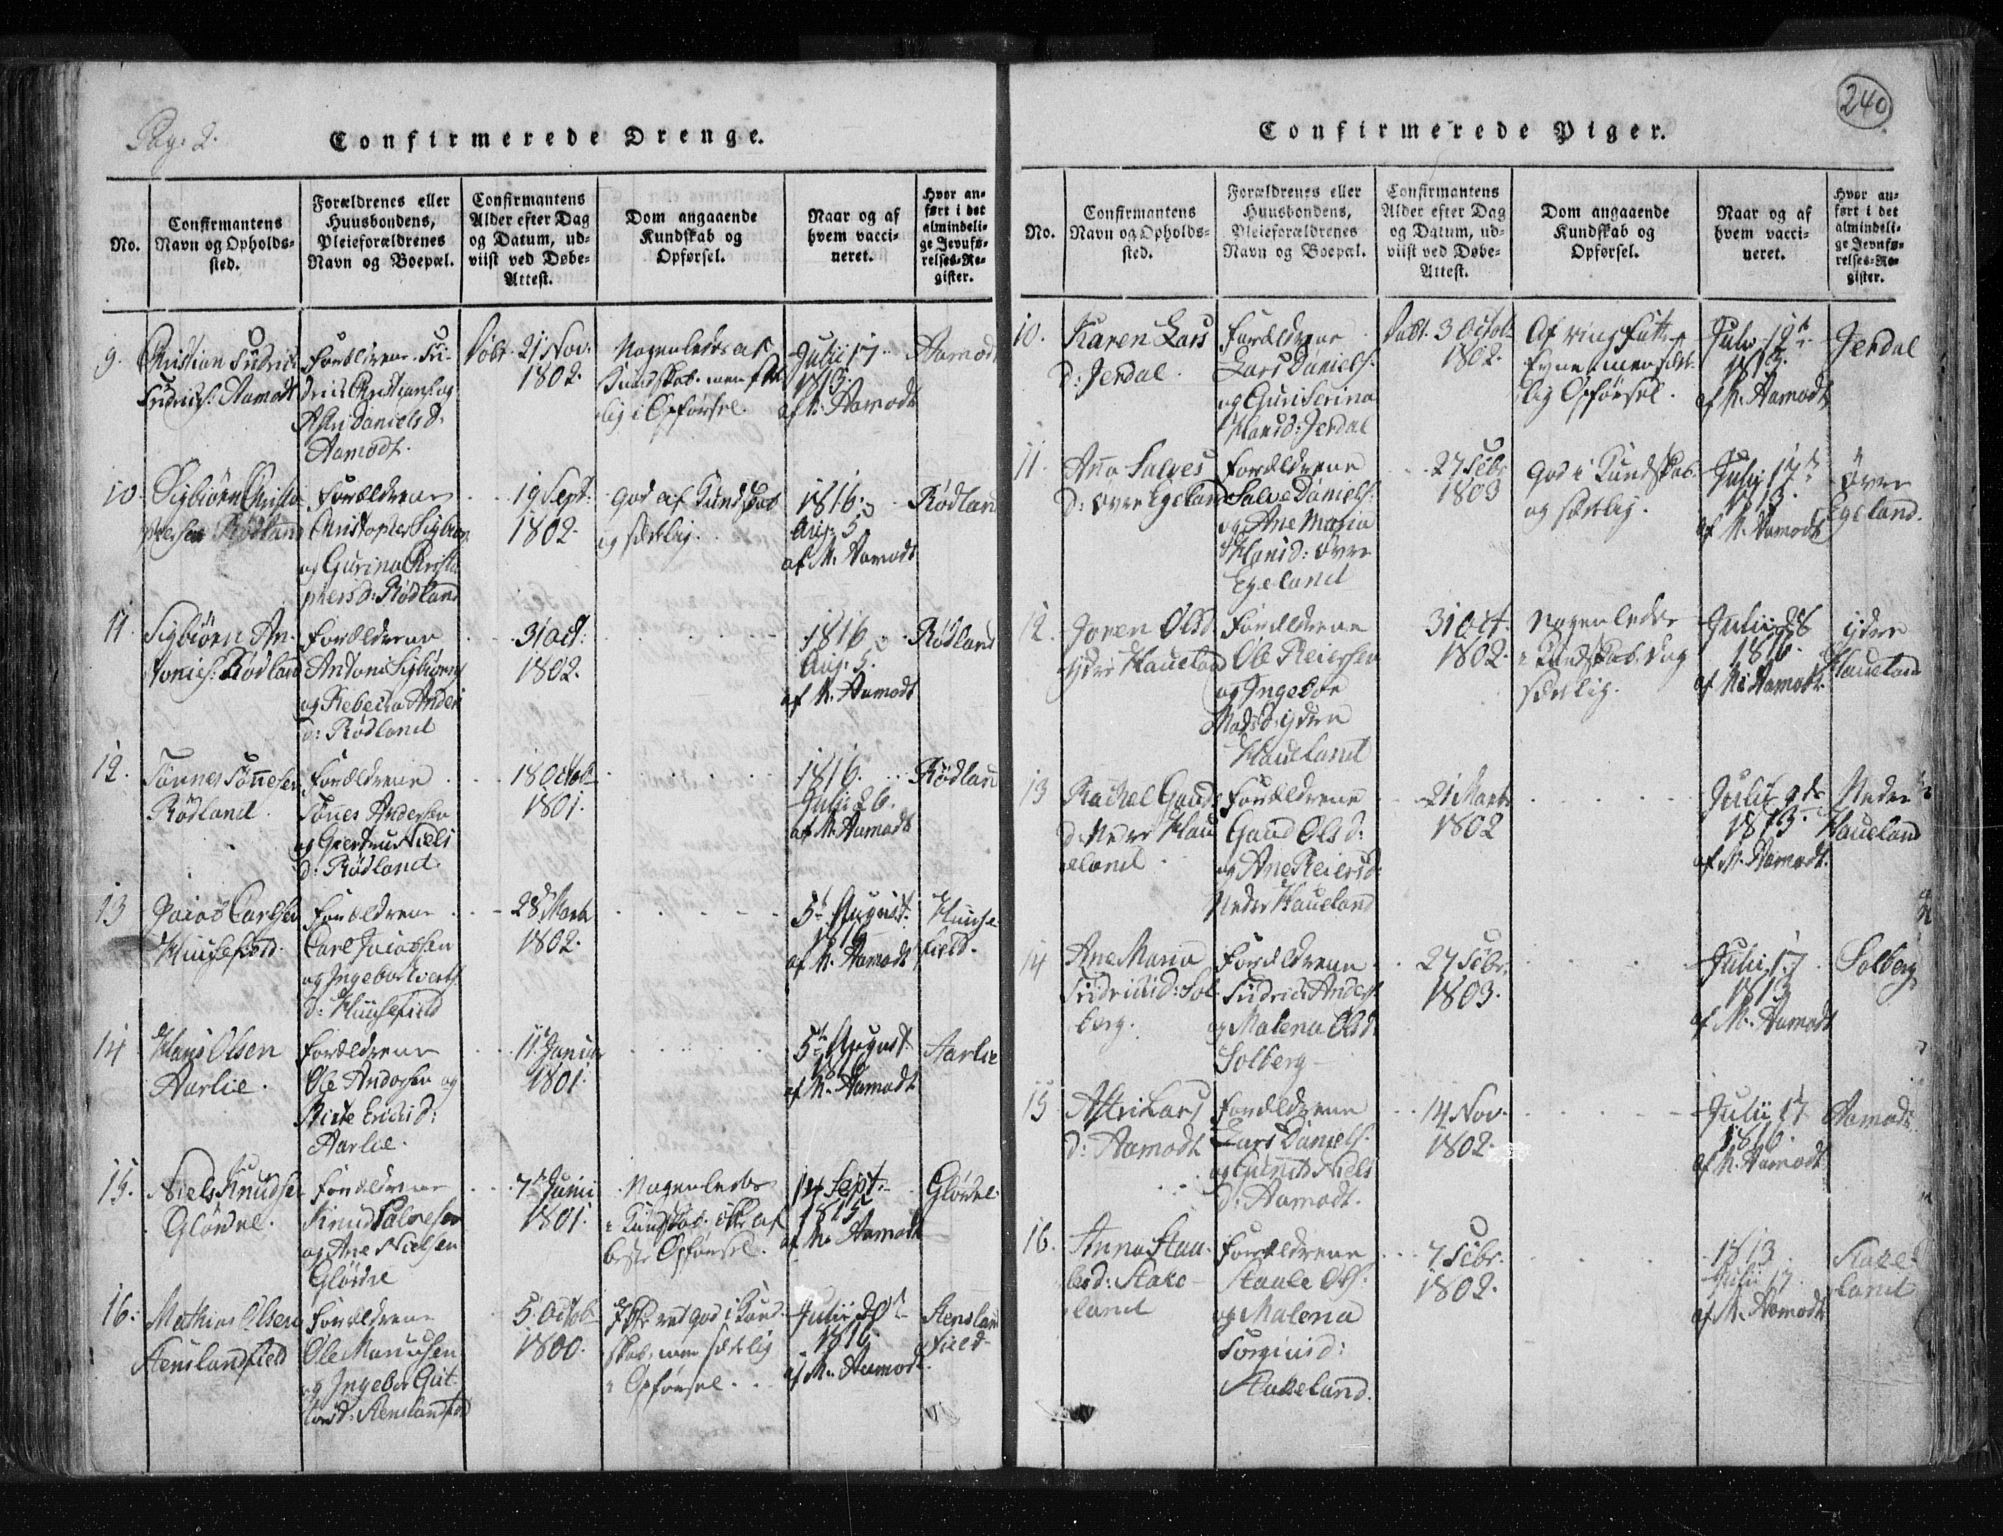 Pag. 2.
Confirmerede Drenge.
No.
Confirmantens
Navn og Opholds-
sted.
Forældrenes eller
Huusbondens,
Pleieforældrenes
Navn og Boepæl.
Confirmantens
Alder efter Dag
og Datum, ud-
viist ved Døbe-
Attest.
Dom angaaende
Kundskab og
Opførsel.
Naar og af
hvem vacci-
neret.
Hvor an-
ført i det
almindeli-
ge Jevnfø-
relses-Re-
gister.
9.
Christian Fridrich
Fridrichs: Aamodt
Forældrene Fri-
drich Christians: og
Danielsd.
Aamodt.
Døbt 21 Nov.
1802.
Nogenledes af
Kundskab. men
lig i Opførsel.
Julii 17
1813.
af N. Aamodt
Aamodt
10
Sigbiørn Christo
phersen Rødland
Forældrene
Christopher Sigbiørn
og Gurina Christo
phersd: Rødland
19 Sept:
1802.
god af Kundskab
og sædelig.
1816.
Aug. 5.
af N. Aamodt
Rødland
11.
Sigbiørn An-
tonis: Rødland
Forældrene
Antoni Sigbiørns
og Rebecca Anders
d: Rødland
31 oct:
1802.
1816
Aug. 5.
af N. Aamodt
Rødland
12.
Tønnes Tønnesen
Rødland.
Forældrene
Tønnes Andersen
og Giertrue Niels
d: Rødland.
18 Octob
1801.
1816.
Julii 26.
af N. Aamodt
Rødland
13
Jacob Carlsen
Huusefield.
Forældrene
Carl Jacobsen
og Ingebor
d: Huusefield
28 Marts
1802.
5t August.
1816
af N. Aamodt
Huuse-
field.
14
Hans Olsen
Aarlie.
Forældrene
Ole Andersen og
Erichsd:
Aarlie.
11 Januar
1801.
5t August.
af N. Aamodt
Aarlie
15.
Niels Knudsen
Glørdel.
Forældrene
Knud Salvesen
og Ane Nielsen
7 Junii
1801.
Nogenledes
i Kundskab. ikke af
beste Opførsel.
14 Sept:
1815
af N. Aamodt
Glørdel.
16.
Mathias Olsen
Stenslandfield
Forældrene
Ole
og Ingebor
d: Stenslandfield
5. Octob
1800.
god i Kund-
skab, men sædelig
i Opførsel.
Julii
1816
af N. Aamodt
Stensland
field
240
Confirmerede Piger.
No.
Confirmantens
Navn og Opholds-
sted.
Forældrenes eller
Huusbondens,
Pleieforældrenes
Navn og Boepæl.
Confirmantens
Alder efter Dag
og Datum, ud-
viist ved Døbe-
Attest.
Dom angaaende
Kundskab og
Opførsel.
Naar og af
hvem vacci-
neret.
Hvor an-
ført i det
almindeli-
ge Jevnfø-
relses-Re-
gister.
10.
Karen Lars
d: Jerdal.
Forældrene
Lars Daniels:
og Guri Serina
Hansd: Jerdal
Døbt. 3 Octob
1802.
Af ring
Evne, men sæde-
lig Opførsel.
Julii
af N. Aamodt
Jerdal
11.
Anna Salves
d: Øvre Egeland
Forældrene
Salve Daniels:
og Ane Maria
Hansd: Øvre
Egeland
27 Febr
1803
God i Kundskab.
og sædelig.
Julii 17
1813.
af N. Aamodt
Øvre
Egeland.
12.
Joren Olsd
ydre Haueland
Forældrene
Ole Reiersen
og Ingebor
Madsd. ydre
Haueland
31 Oct.
1802.
Nogenledes
i Kundskab. dog
sædelig.
Julii 28
1816.
af N. Aamodt
ydre
Haueland
13
Rachel Gauds
d: Nedre Hau
eland.
Forældrene
Gaud Ols:
og Ane Reiersd:
Neder Haueland
21 Marts
1802
Julii 9de
1813.
af N. Aamodt.
Nedre
Haueland
14
Ane Maria
Fridrichsd: Sol-
berg.
Forældrene
Fridrich Anders:
og Malena Olsd:
Solberg
27 Febr.
1803.
Julii 17
1813
af N. Aamodt
Solberg
15
Astri Lars
d: Aamodt
Forældrene
Lars Daniels:
og Niels
d: Aamodt.
14 Nov.
1802.
Julii 17
1816.
af N. Aamodt
Aamodt.
16.
Anna Staa-
lesd: Stake-
land
Forældrene
Staale Ols:
og Malena
Torgiusd:
Stakeland.
7 Febr.
1802.
1813
Julii 17.
af N. Aamodt
Stake-
land